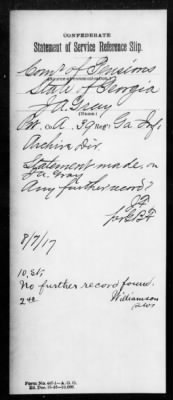 CONFEDERATE
Statement of Service Reference Slip.
Comr of Pensions
State of Georgia
J. A. Gray
(Name.)
Pvt. Co A. 39 Reg't Ga Inf.
Archive Div.
Statement made, on
J. A. Gray
Any further record?
8/7/17
No further record found.
Williamson
Form No.